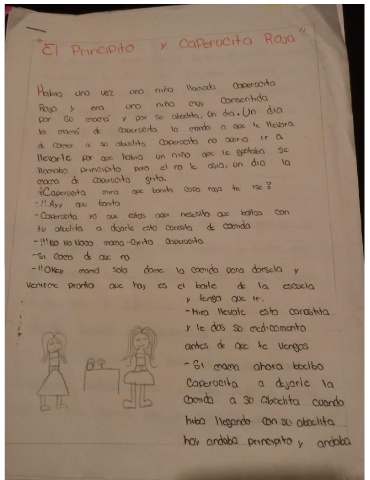 "El Principito y Caperucita Roja"
Habia una vez una niña llamada caperucita
Roja y era una niña muy consentida
por so mamá y por so abuelita, Un dia. Un dia
la mamá de caperucita la mando a que le llevara
de comer a so abuelita Caperucita no queria ir a
llevarle por que habia un niño que le gustaba se
llamaba principito pero el no le asia, un dia la
mama de caperucita grita.
Caperucita mira que bonita capa roja te ise?
-!!Ayy que bonita
-Caperucita ya que estas aqui necesito que ballas con
tu abuelita a dejarle esta canasta de comida
-!!!No No Nooo mama-Grito caperucita
-Si como de que no
-!!Okey mamá solo dame la comida para darsela y
venirme pronto que hoy es el baile de la escuela
y tengo que ir.
-Mira llevale esta canastita
y le das so medicamento
antes de que te vengas
-Si mama ahora
Caperucita a dejarle la
comida a su abuelita cuando
hiba llegando con su abuelita
hay andaba principito y andaba